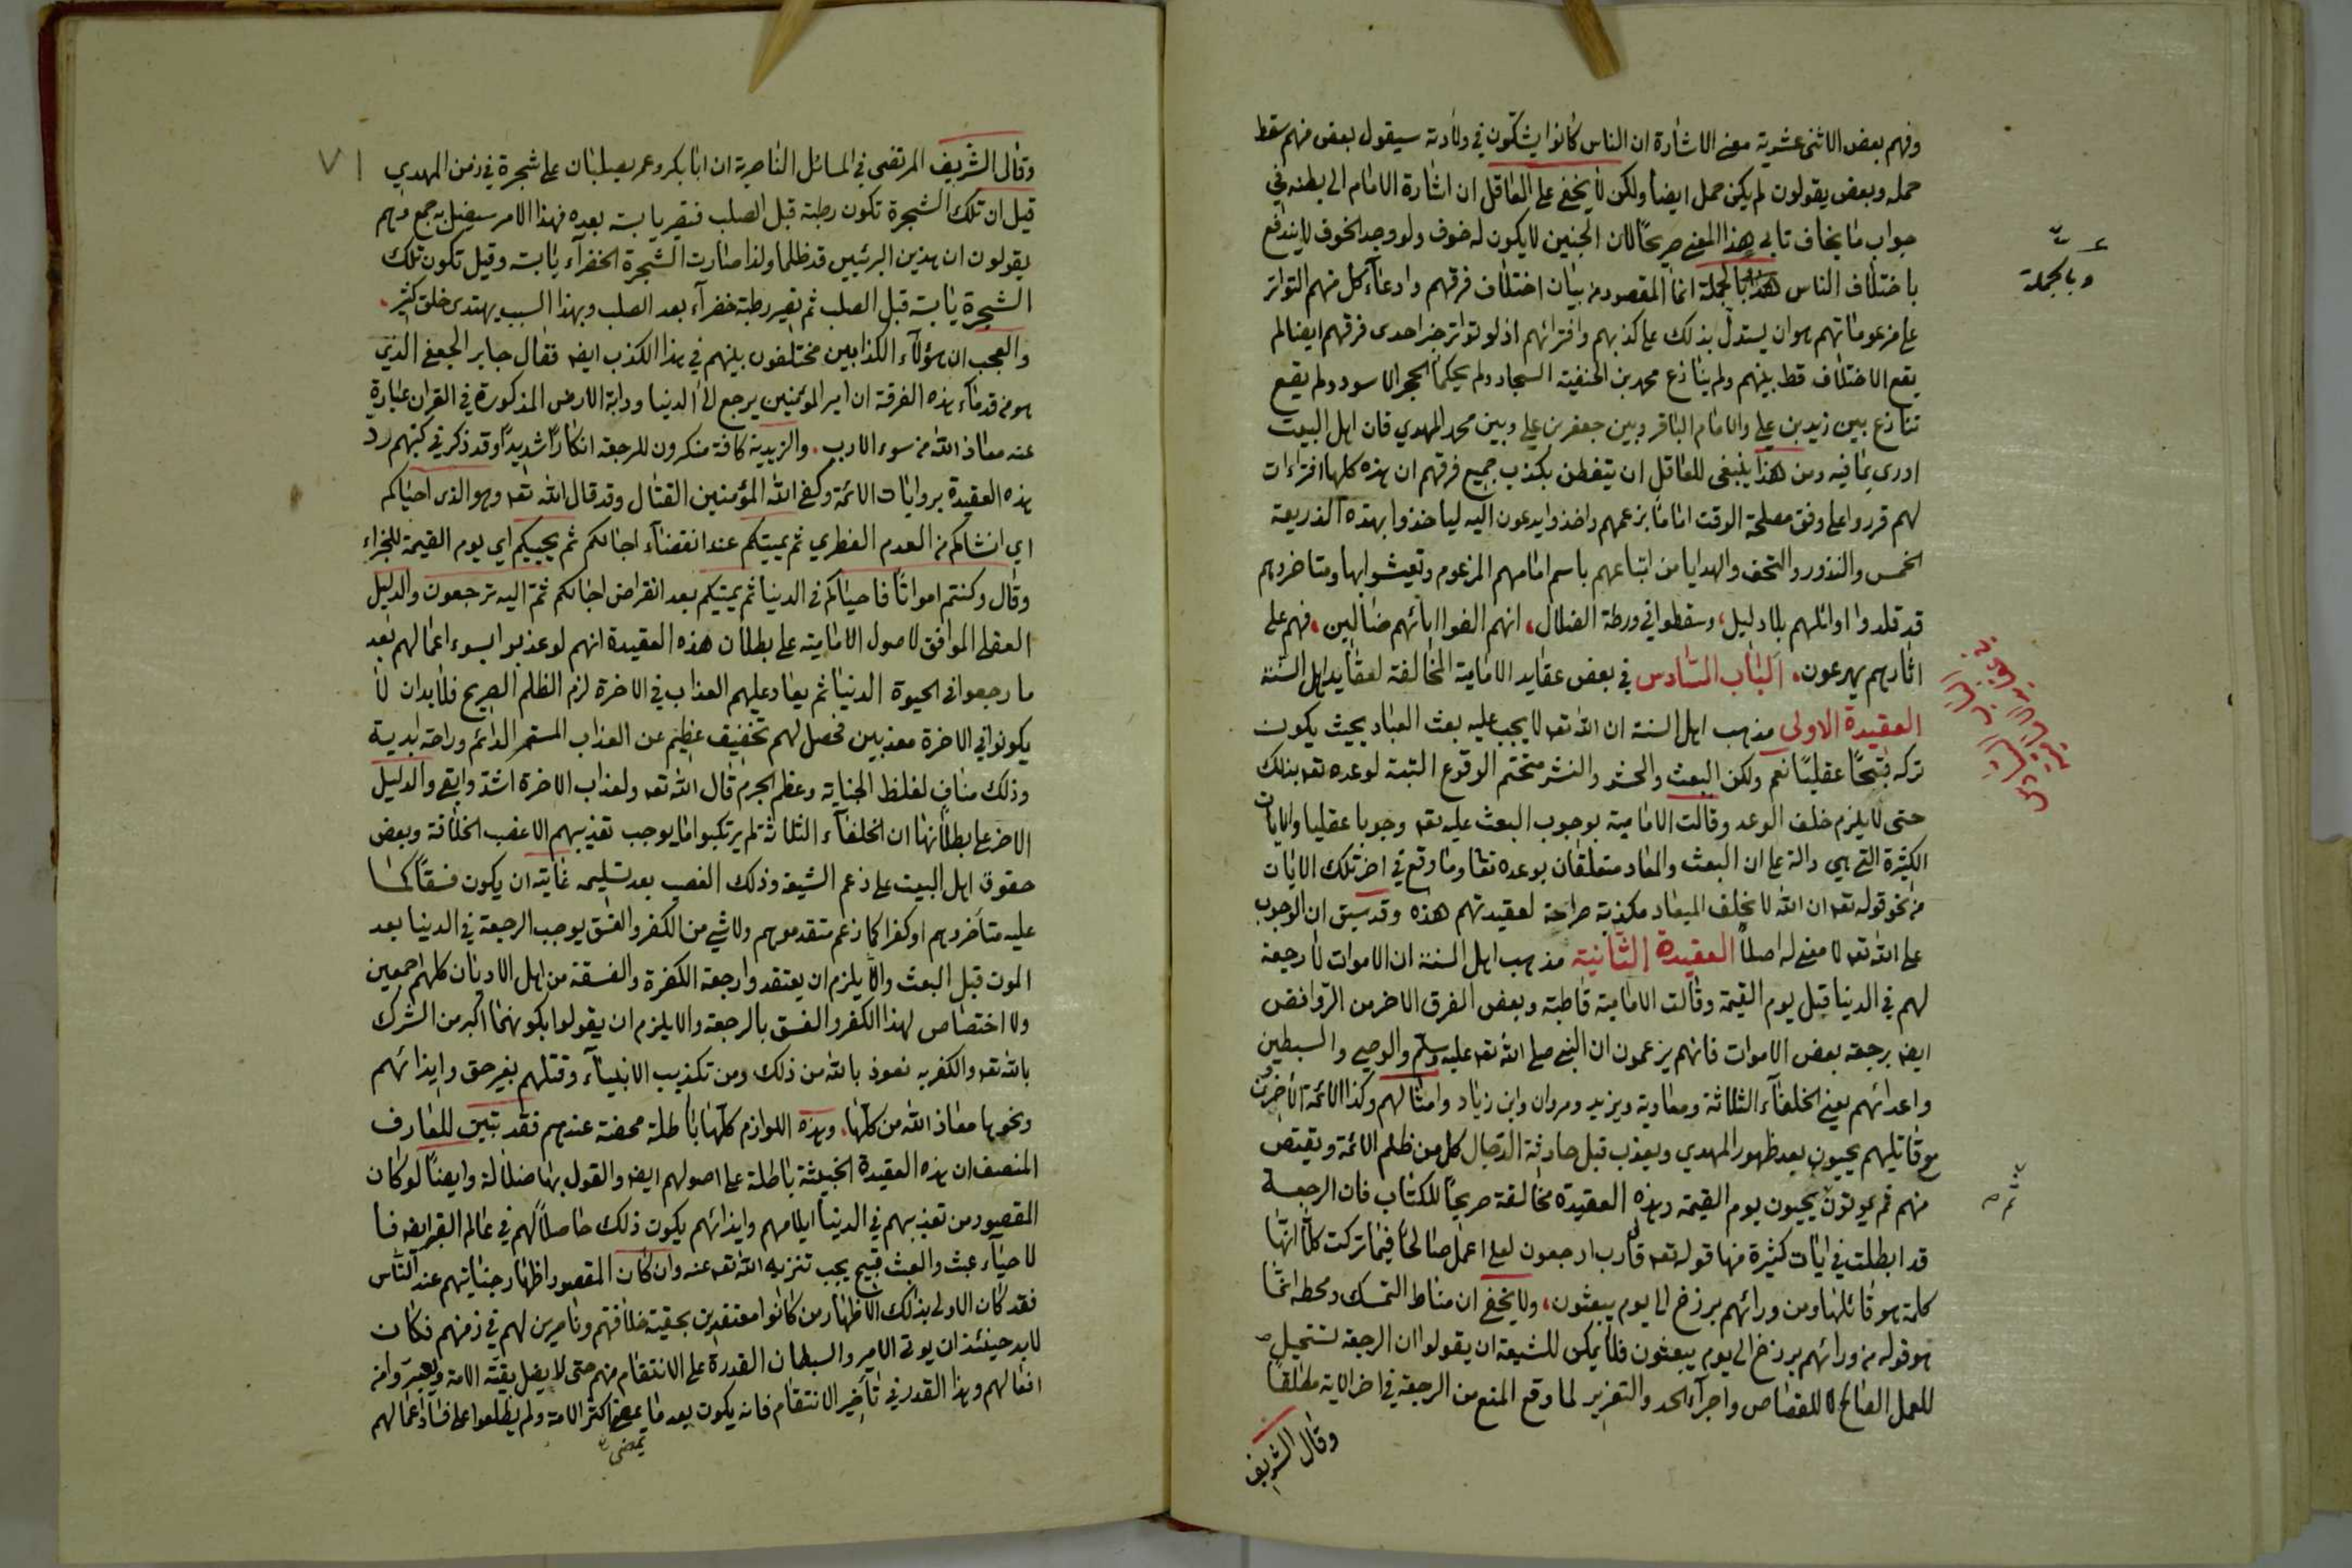 وفهم بعض الاثنى عشرية معنى الاشارة ان الناس كانوا يشكون في ولادته سيقول بعض منهم سقط
حمله وبعض يقولون لم يكن حمل ايضا ولكن لا يخفى على العاقل ان اشارة الامام الى بطنه في
جواب ما يخاف تابى هذا المعنى صريحًا لان الجنين لا يكون له خوف ولو وجد الخوف لا يندفع
باختلاف الناس هذا بالجملة انما المقصود من بيان اختلاف فرقهم وادعاء كل منهم التواتر
على مزعوماتهم هو ان يستدل بذلك على كذبهم وافترائهم اذ لو تواتر خبر احدى فرقهم ايضا لم
يقع الاختلاف قط بينهم ولم ينازع محمد بن الحنفية السجاد ولم يحكما الحجر الاسود ولم يقع
تنازع بين زيد بن علي والامام الباقر وبين جعفر بن علي وبين محمد المهدي فان اهل البيت
ادرى بما فيه ومن هذا ينبغى للعاقل ان يتفطن بكذب جميع فرقهم ان هذه كلها افتراءات
لهم قرروا على وفق مصلحة الوقت اماما بزعمهم واخذوا يدعون اليه لياخذوا بهذه الذريعة
الخمس والنذور والتحف والهدايا من اتباعهم باسم امامهم المزعوم وتعيشوا بها ومتاخروهم
قد قلدوا اوائلهم بلا دليل، وسقطوا في ورطة الضلال، انهم الفوا ابائهم ضالين، فهم على
اثارهم يهرعون. الباب السادس في بعض عقايد الامامية المخالفة لعقايد اهل السنة
العقيدة الاولى مذهب اهل السنة ان الله تعه لا يجب عليه بعث العباد بحيث يكون
تركه قبيحًا عقليًا نعم ولكن البعث والحشر والنشر متحتم الوقوع البتة لوعده تعه بذلك
حتى لا يلزم خلف الوعد وقالت الامامية بوجوب البعث عليه تعه وجوبا عقليا والايات
الكثيرة التي هي دالة على ان البعث والمعاد متعلقان بوعده تعا وما وقع في اخر تلك الايات
من نحو قوله تعه ان الله لا يخلف الميعاد مكذبة صراحة لعقيدتهم هذه وقد سبق ان الوجوب
على الله تعه لا معنى له اصلًا العقيدة الثانية مذهب اهل السنة ان الاموات لا رجعة
لهم في الدنيا قبل يوم القيمة وقالت الامامية قاطبة وبعض الفرق الاخر من الروافض
ايضه برجعة بعض الاموات فانهم يزعمون ان النبي صلى الله تعه عليه وسلم والوصي والسبطين
واعدائهم يعنى الخلفاء الثلاثة ومعاوية ويزيد ومروان وابن زياد وامثالهم وكذا الائمة الاخرين
مع قاتليهم يحيون بعد ظهور المهدي ويعذب قبل حادثة الدجال كل من ظلم الائمة ويقتص
منهم ثم يموتون يحيون يوم القيمة وهذه العقيدة مخالفة صريحًا للكتاب فان الرجعة
قد ابطلت في ايات كثيرة منها قوله تعه قال رب ارجعون لعلى اعمل صالحًا فيما تركت كلا انها
كلمة هو قائلها ومن ورائهم برزخ الى يوم يبعثون، ولا يخفى ان مناط التمسك ومحطه انما
هو قوله من ورائهم برزخ الى يوم يبعثون فلا يمكن للشيعة ان يقولوا ان الرجعة تستحيل
للعمل الصالح لا للقصاص واجرآء الحد والتعزير لما وقع المنع من الرجعة في اخر الاية مطلقًا
وقال الشريف
وبالجملة
ثم
٧١
وقال الشريف المرتضى في المسائل الناصرية ان ابا بكر وعمر يصلبان على شجرة في زمن المهدي
قيل ان تلك الشجرة تكون رطبة قبل الصلب فتصير يابسة بعده فهذا الامر سيضل به جمع وهم
يقولون ان هذين البرئيين قد ظلما ولذا صارت الشجرة الخضرآء يابسة وقيل تكون تلك
الشجرة يابسة قبل الصلب ثم تصير رطبة خضرآء بعد الصلب وبهذا السبب يهتدى خلق كثير.
والعجب ان هؤلآء الكذابين مختلفون بينهم في هذا الكذب ايضه فقال جابر الجعفى الذي
هو من قدماء هذه الفرقة ان امير المؤمنين يرجع الى الدنيا ودابة الارض المذكورة في القران عبارة
عنه معاذ الله من سوء الادب. والزيدية كافة منكرون للرجعة انكارًا شديدًا وقد ذكر في كتبهم رد
هذه العقيدة بروايات الائمة وكفى الله المؤمنين القتال وقد قال الله تعه وهو الذى احياكم
اي انشاكم من العدم الفطري ثم يميتكم عند انقضآء اجالكم ثم يحييكم اي يوم القيمة للجزاء
وقال وكنتم امواتًا فاحياكم في الدنيا ثم يميتكم بعد انقراض اجالكم ثم اليه ترجعون والدليل
العقلى الموافق لاصول الامامية على بطلان هذه العقيدة انهم لو عذبوا بسوء اعمالهم بعد
ما رجعوا في الحيوة الدنيا ثم يعاد عليهم العذاب في الاخرة لزم الظلم الصريح فلا بد ان لا
يكونوا في الاخرة معذبين فحصل لهم تخفيف عظيم عن العذاب المستمر الدائم وراحة ابدية
وذلك مناف لغلظ الجناية وعظم الجرم قال الله تعه ولعذاب الاخرة اشد وابقى والدليل
الاخر على بطلانها ان الخلفآء الثلاثة لم يرتكبوا ما يوجب تعذيبهم الا غصب الخلافة وبعض
حقوق اهل البيت على زعم الشيعة وذلك الغصب بعد تسليمه غايته ان يكون فسقًا كما
عليه متأخروهم او كفرا كما زعم متقدموهم ولا شي من الكفر والفسق يوجب الرجعة في الدنيا بعد
الموت قبل البعث والا يلزم ان يعتقدوا رجعة الكفرة والفسقة من اهل الاديان كلهم اجمعين
ولا اختصاص لهذا الكفر والفسق بالرجعة والا يلزم ان يقولوا بكونهما اكبر من الشرك
بالله تعه والكفر به نعوذ بالله من ذلك ومن تكذيب الانبيآء وقتلهم بغير حق وايذائهم
ونحوها معاذ الله من كلها. وهذه اللوازم كلها باطلة محضة عندهم فقد تبين للعارف
المنصف ان هذه العقيدة الخبيثة باطلة على اصولهم ايضه والقول بها ضلالة وايضًا لو كان
المقصود من تعذيبهم في الدنيا ايلامهم وايذائهم يكون ذلك حاصلًا لهم في عالم القبر ايضه فا
لاحيآء عبث والعبث قبيح يجب تنزيه الله تعه عنه وان كان المقصود اظهار جنايتهم عند الناس
فقد كان الاولى بذلك الاظهار من كانوا معتقدين بحقية خلافتهم وناصرين لهم في زمنهم فكان
لا بد حينئذ ان يوتى الامير والسبطان القدرة على الانتقام منهم حتى لا يضل بقية الامة ويعبروا من
افعالهم وهذا القدر في تاخير الانتقام فانه يكون بعد ما يمضى اكثر الامة ولم يطلعوا على فساد اعمالهم
يمضى